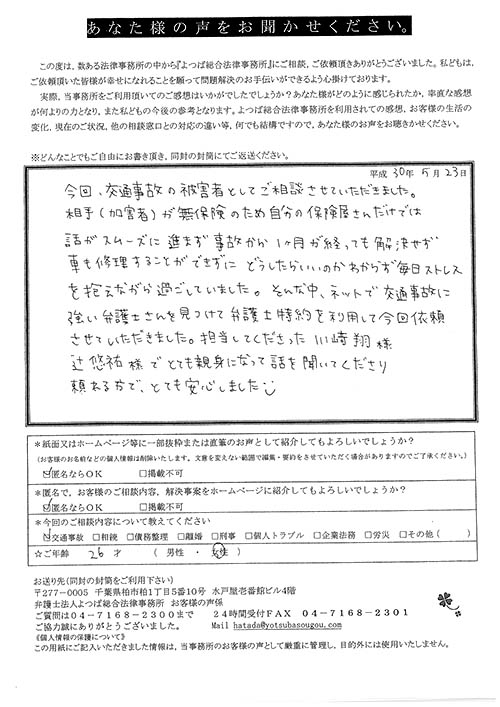 あなた様の声をお聞かせください。
この度は、数ある法律事務所の中から『よつば総合法律事務所』にご相談、ご依頼頂きありがとうございました。私どもは、
ご依頼頂いた皆様が幸せになれることを願って問題解決のお手伝いができるよう心掛けております。
実際、当事務所をご利用頂いてのご感想はいかがでしたでしょうか？あなた様がどのように感じられたか、率直な感想
が何よりの力となり、また私どもの今後の参考となります。よつば総合法律事務所を利用されての感想、お客様の生活の
変化、現在のご状況、他の相談窓口との対応の違い等、何でも結構ですので、あなた様のお声をお聴きかせください。
※どんなことでもご自由にお書き頂き、同封の封筒にてご返送ください。
平成 30年 5月 23日
今回、交通事故の被害者としてご相談させていただきました。
相手(加害者)が無保険のため自分の保険屋さんだけでは
話がスムーズに進まず事故から1ヶ月が経っても解決せず
車も修理することができずに どうしたらいいのかわからず毎日ストレス
を抱えながら過ごしていました。そんな中、ネットで交通事故に
強い弁護士さんを見つけて弁護士特約を利用して今回依頼
させていただきました。担当してくださった 川﨑翔様
辻悠祐様 でとても親身になって話を聞いてくださり
頼れる方で、とても安心しました
＊紙面又はホームページ等に一部抜粋または直筆のお声として紹介してもよろしいでしょうか？
(お客様のお名前などの個人情報は削除いたします。文意を変えない範囲で編集・要約をさせていただく場合がありますのでご了承ください。)
☑匿名ならOK □掲載不可
＊匿名で、お客様のご相談内容、解決事案をホームページに紹介してもよろしいでしょうか？
☑匿名ならOK □掲載不可
＊今回のご相談内容について教えてください
☑交通事故 □相続 □債務整理 □離婚 □刑事 □個人トラブル □企業法務 □労災 □その他( )
☆ご年齢 26 才 (男性・女性)
お送り先(同封の封筒をご利用下さい)
〒277-0005 千葉県柏市柏1丁目5番10号 水戸屋壱番館ビル4階
弁護士法人よつば総合法律事務所 お客様の声係
ご質問は04-7168-2300まで 24時間受付FAX 04-7168-2301
ご協力誠にありがとうございました。 Mail hatada@yotsubasougou.com
《個人情報の保護について》
この用紙にご記入いただきました情報は、当事務所のお客様の声として厳重に管理し、目的外には使用いたしません。